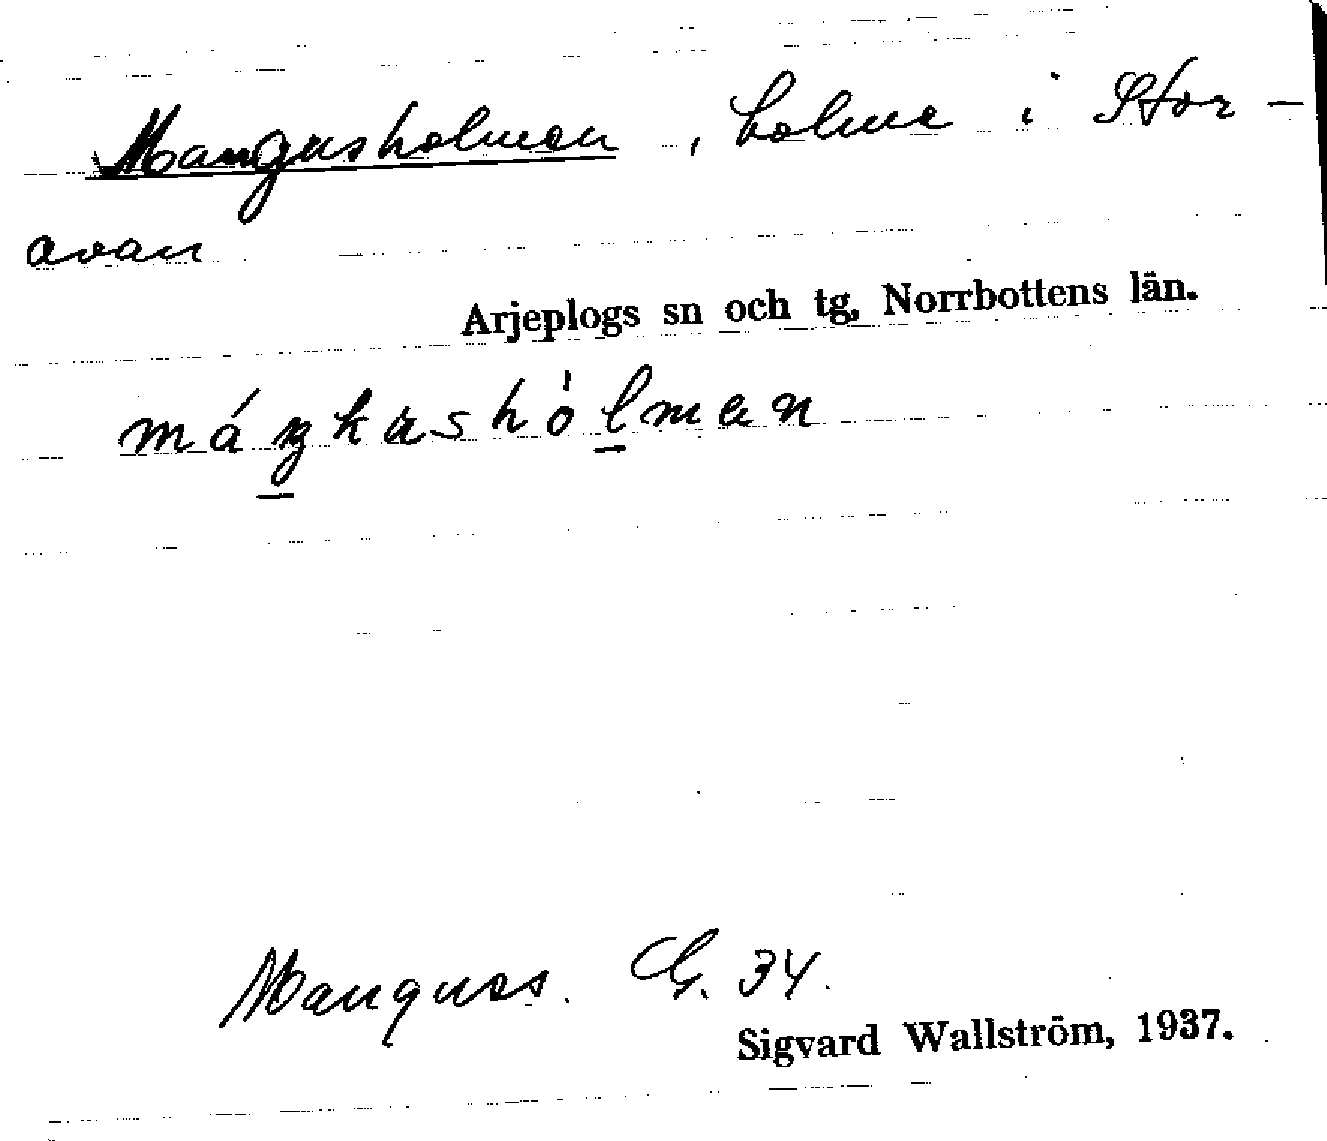 Mangusholmen, holme i Stor-
avan
Arjeplogs sn och tg, Norrbottens län.
máŋkashólman
Mangus. G. 34.
Sigvard Wallström, 1937.